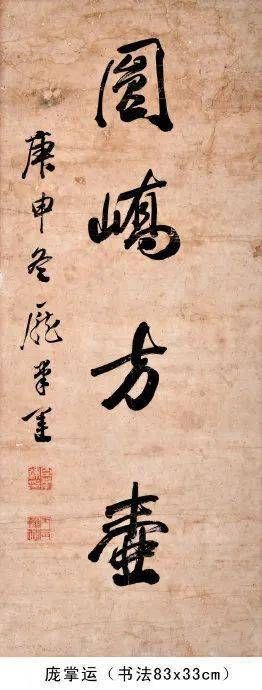 圓嶠方壺
庚申冬龐掌運
庞掌运（书法83x33cm）